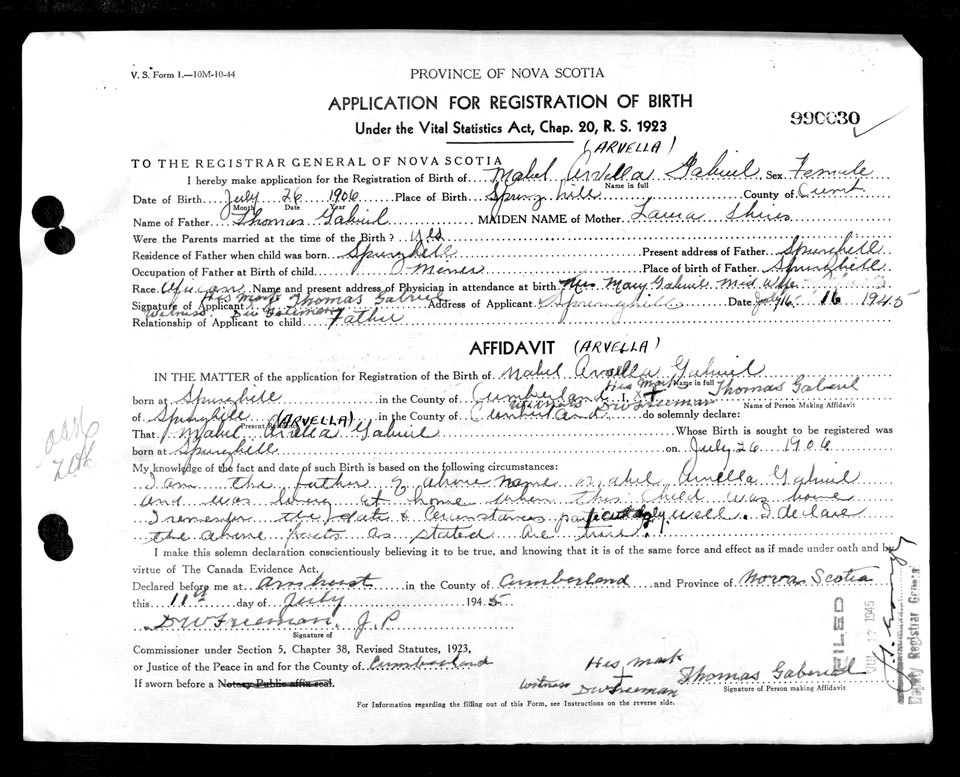 V. S. Form 1.—10M-10-44
PROVINCE OF NOVA SCOTIA
APPLICATION FOR REGISTRATION OF BIRTH
990030
Under the Vital Statistics Act, Chap. 20, R. S. 1923
(ARVELLA)
TO THE REGISTRAR GENERAL OF NOVA SCOTIA
I hereby make application for the Registration of Birth of Mabel Arvella Gabriel Sex Female
Name in full
Date of Birth July 26 1906 Place of Birth Spring hill County of Cumb.
Month Date Year
Name of Father Thomas Gabriel MAIDEN NAME of Mother Laura
Were the Parents married at the time of the Birth? Yes
Residence of Father when child was born Springhill Present address of Father Springhill
Occupation of Father at Birth of child Miner Place of birth of Father Springhill
Race Name and present address of Physician in attendance at birth Mrs Mary Gabriel Mid Wife
His Mark
Signature of Applicant Thomas Gabriel Address of Applicant Springhill Date July 16 1945
Witness. DW Freeman
Relationship of Applicant to child Father
AFFIDAVIT (ARVELLA)
IN THE MATTER of the application for Registration of the Birth of Mabel Arvella Gabriel
Name in full
His Mark
born at Springhill in the County of Cumberland I, + Thomas Gabriel
Witness DW Freeman
Name of Person Making Affidavit
of Springhill in the County of Cumberland do solemnly declare:
Present Residence
(ARVELLA)
That Mabel Arvella Gabriel Whose Birth is sought to be registered was
born at Springhill on July 26 1906
My knowledge of the fact and date of such Birth is based on the following circumstances:
I am the father of above name Mabel Arvella Gabriel
and was living at home when this child was borne
I remember the date & Circumstances particularly well. I declare
the above facts as stated are true.
I make this solemn declaration conscientiously believing it to be true, and knowing that it is of the same force and effect as if made under oath and by
virtue of The Canada Evidence Act.
Declared before me at Amherst in the County of Cumberland and Province of Nova Scotia
this 11th day of July 1945
DW Freeman, J. P
Signature of
Commissioner under Section 5, Chapter 38, Revised Statutes, 1923,
or Justice of the Peace in and for the County of Cumberland
If sworn before a Notary Public affix seal.
His Mark
+
Thomas Gabereal
witness DW Freeman
Signature of Person making Affidavit
For Information regarding the filling out of this Form, see Instructions on the reverse side.
FILED
JUL 17 1945
Deputy Registrar General